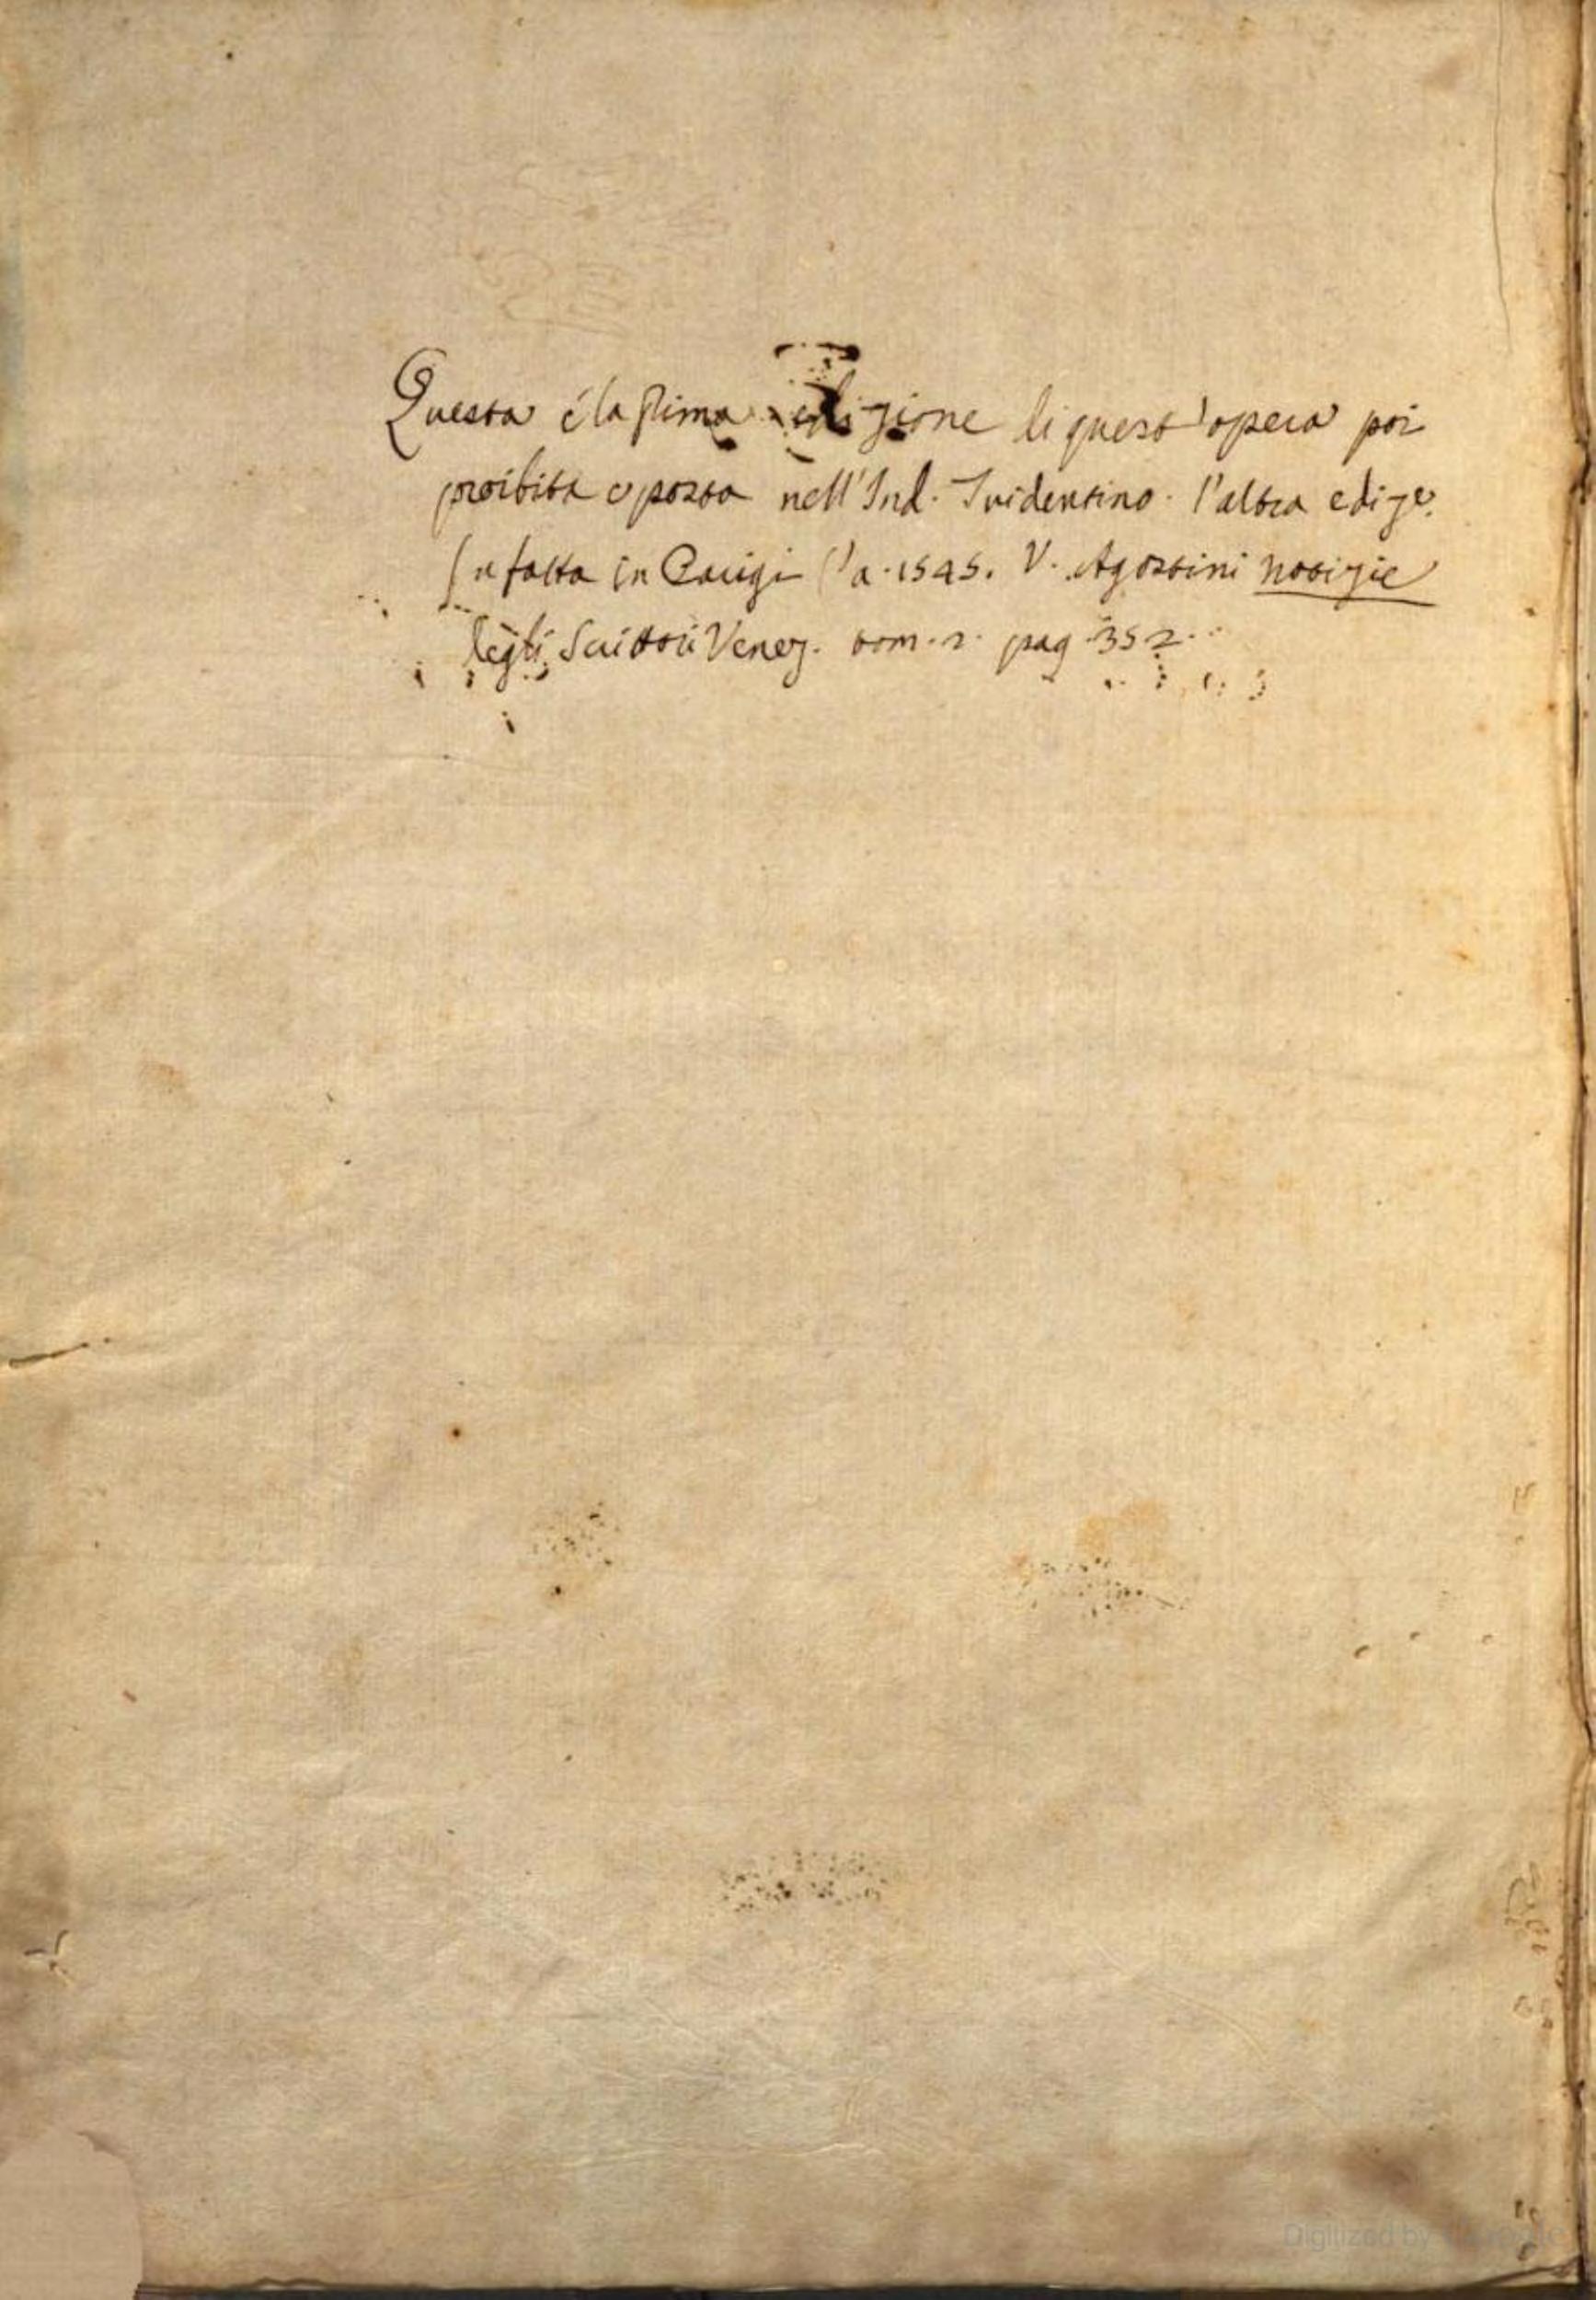 Questa é la prima edizione di quest'opera poi
proibita e posta nell'Ind. Tridentino. l'altra ediz.e
fu fatta in Parigi l'a. 1545. V. Agostini notizie
degli Scrittori Venez. tom. 2. pag. 352.
Digitized by Google